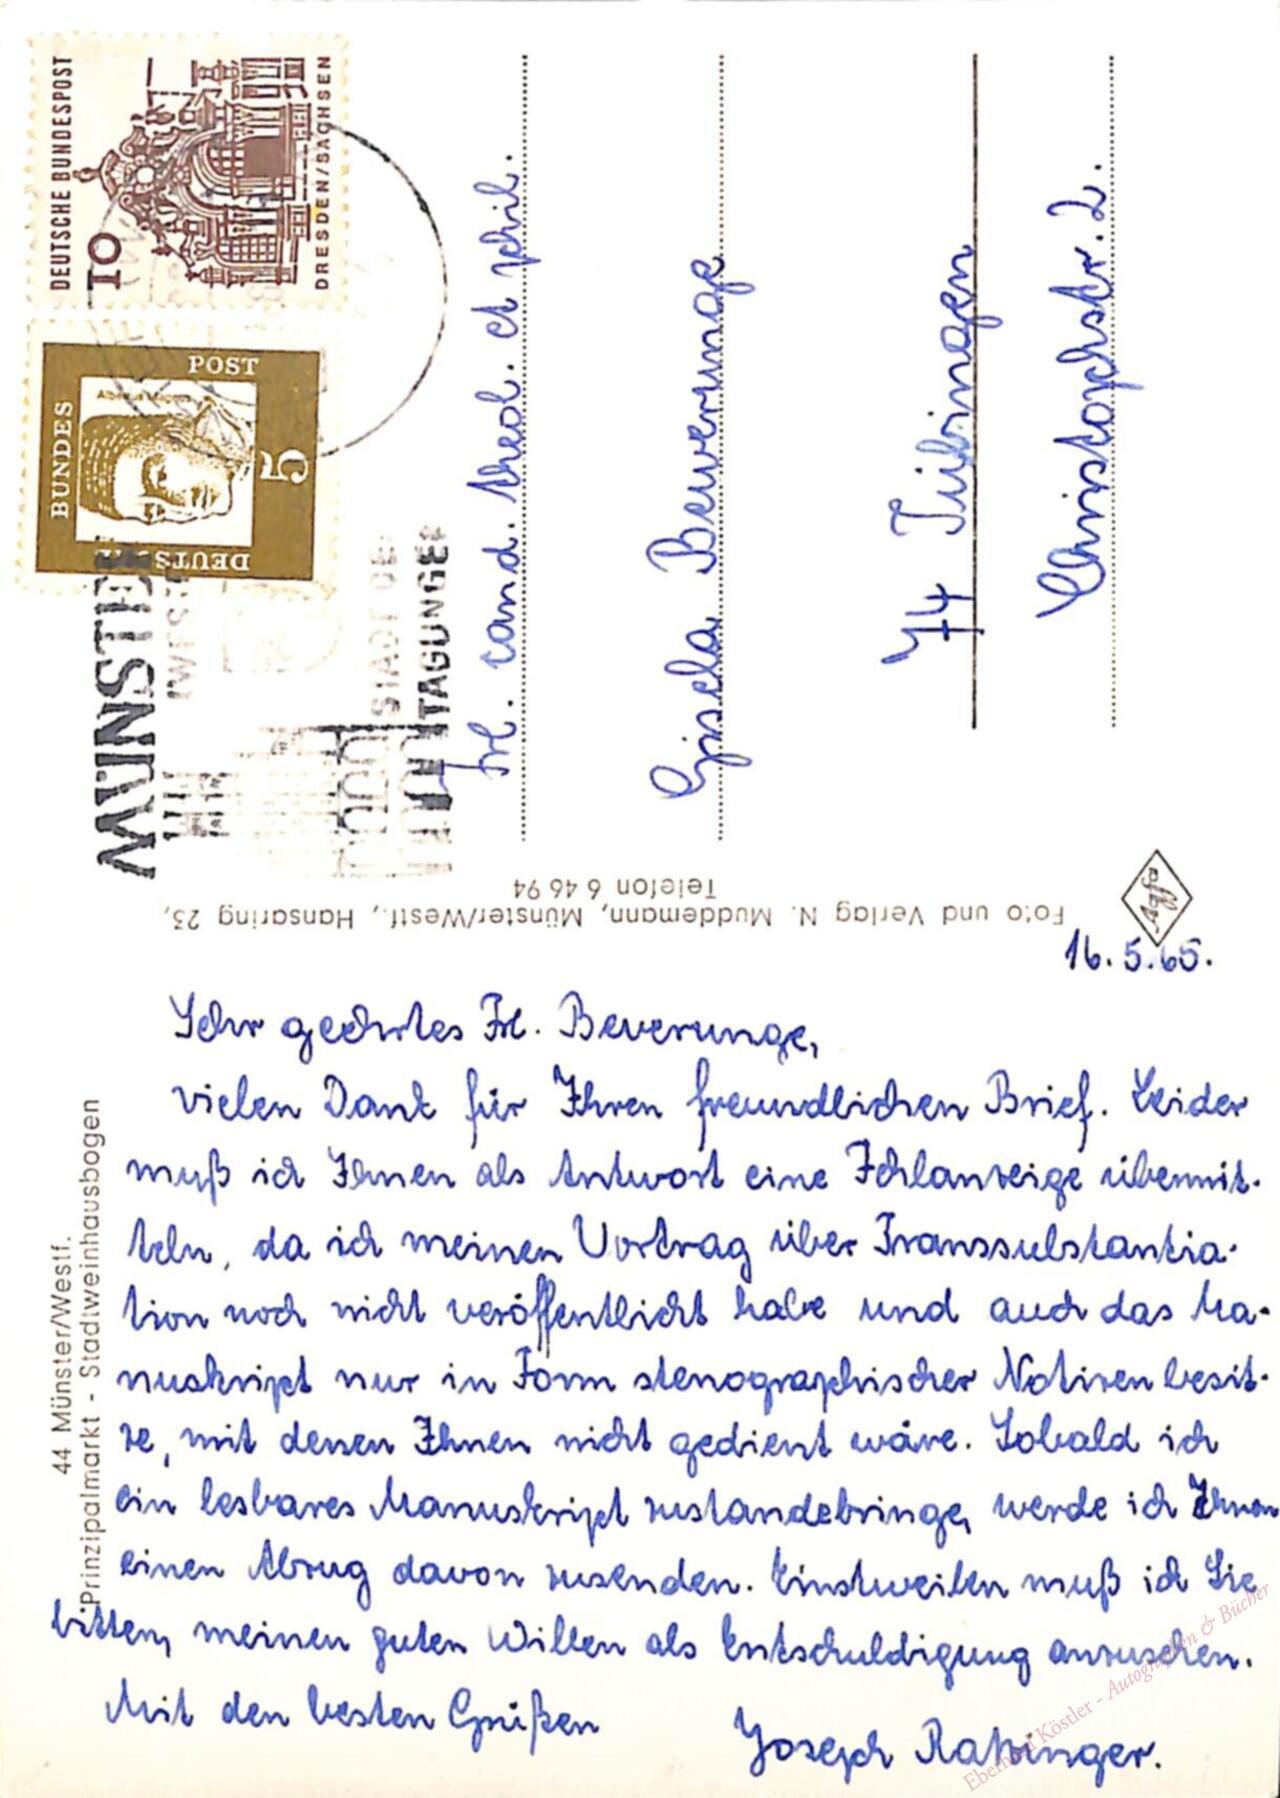 DEUTSCHE BUNDESPOST
10
DRESDEN/SACHSEN
DEUTSCHE
BUNDES
POST
Albertus Magnus
5
MÜNSTER
TAGUNGE
Frl. cand. theol. et phil.
Gisela Beverunge
74 Tübingen
Christophstr. 2.
Foto und Verlag N. Muddemann, Münster/Westf., Hansaring 23,
Telefon 6 46 94
Agfa
44 Münster/Westf.
Prinzipalmarkt - Stadtweinhausbogen
16.5.65.
Sehr geehrtes Frl. Beverunge,
vielen Dank für Ihren freundlichen Brief. Leider
muß ich Ihnen als Antwort eine Fehlanzeige übermit-
teln, da ich meinen Vortrag über Transsubstantia-
tion noch nicht veröffentlicht habe und auch das Ma-
nuskript nur in Form stenographischer Notizen besit-
ze, mit denen Ihnen nicht gedient wäre. Sobald ich
ein lesbares Manuskript zustandebringe, werde ich Ihnen
einen Abzug davon zusenden. Einstweilen muß ich Sie
bitten, meinen guten Willen als Entschuldigung anzusehen.
Mit den besten Grüßen
Joseph Ratzinger.
Eberhard Köstler - Autographen & Bücher